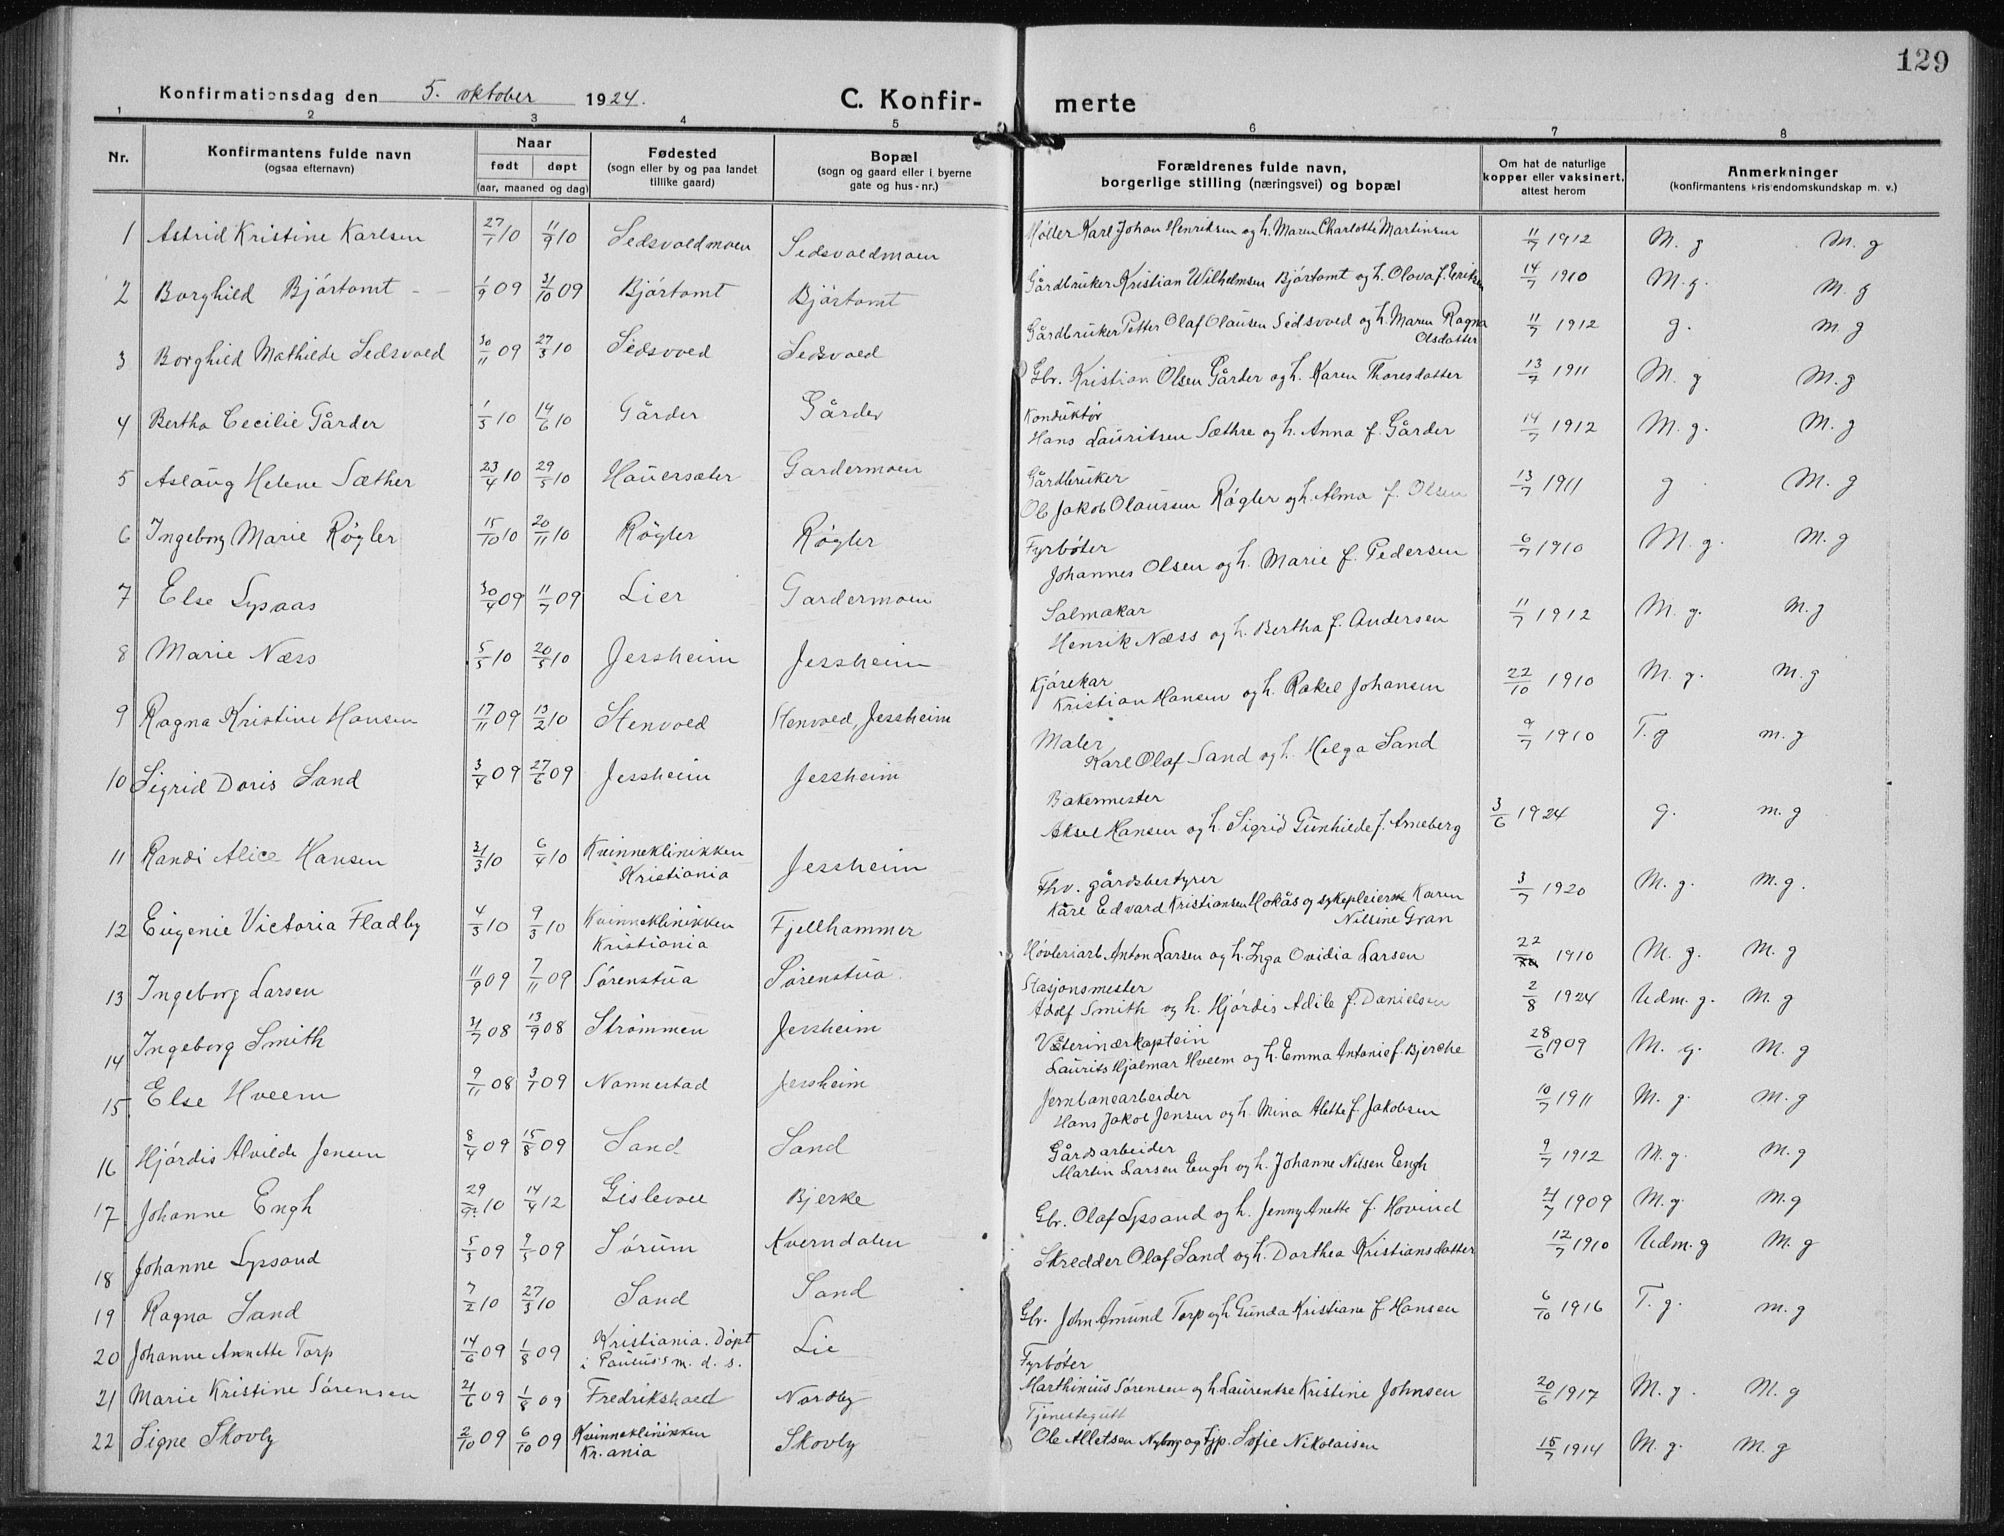 129
Konfirmationsdag den 5. oktober 1924.
C. Konfir- merte
1 2 3 4 5 6 7 8
Nr.
Konfirmantens fulde navn
(ogsaa efternavn)
Naar
født døpt
(aar, maaned og dag)
Fødested
(sogn eller by og paa landet
tillike gaard)
Bopæl
(sogn og gaard eller i byerne
gate og hus-nr.)
Forældrenes fulde navn,
borgerlige stilling (næringsvei) og bopæl
Om hat de naturlige
kopper eller vaksinert,
attest herom
Anmerkninger
(konfirmantens kristendomskundskap m. v.)
1 Astrid Kristine Karlsen 27/7 10 11/9 10 Sedsvoldmoen Sedsvoldmoen
Karl Johan Henriksen og h. Maren Charlotte Martinsen 11/7 1912 M. g M. g
2 Borghild Bjørtomt 1/9 09 31/10 09 Bjørtomt Bjørtomt
Gårdbruker Kristian Wilhelmsen Bjørtomt og h. Olava f. Eriksen 14/7 1910 M. g. M. g
3 Borghild Mathilde Sedsvold 30/11 09 27/3 10 Sedsvold Sedsvold
Gårdbruker Petter Olaf Olausen Sedsvold og h. Maren Ragna
Olsdatter 11/7 1912 g. M. g
4 Bertha Cecilie Gårder 1/3 10 19/6 10 Gårder Gårder
Gbr. Kristian Olsen Gårder og h. Karen Thoresdatter 13/7 1911 M. g M. g
5 Aslaug Helene Sæther 23/4 10 29/5 10 Hauersæter Gardermoen
Konduktør
Hans Lauritsen Sæthre og h. Anna f. Gårder 14/7 1912 M. g. M. g
6 Ingeborg Marie Røgler 15/10 10 20/11 10 Røgler Røgler
Gårdbruker
Ole Jakob Olaussen Røgler og h. Alma f. Olsen 13/7 1911 g M. g
7 Else Lysaas 30/4 09 11/7 09 Lier Gardermoen
Fyrbøter
Johannes Olsen og h. Marie f. Pedersen 6/7 1910 M. g. M. g
8 Marie Næss 5/5 10 20/5 10 Jessheim Jessheim
Salmakar
Henrik Næss og h. Bertha f. Andersen 11/7 1912 M. g. M. g
9 Ragna Kristine Hansen 17/11 09 13/2 10 Stenvold Stenvold, Jessheim
Kjørekar
Kristian Hansen og h. Rakel Johansen 22/10 1910 M. g. M. g
10 Sigrid Doris Sand 3/4 09 27/6 09 Jessheim Jessheim
Maler
Karl Olaf Sand og h. Helga Sand 9/7 1910 T. g m. g
11 Randi Alice Hansen 21/3 10 6/4 10 Kvinneklinikken
Kristiania Jessheim
Bakermester
Aksel Hansen og h. Sigrid Gunhilde f. Arneberg 3/6 1924 g. m. g
12 Eugenie Victoria Fladby 4/3 10 9/3 10 Kvinneklinikken
Kristiania Fjellhammer
Fhv. gårdsbestyrer
Kåre Edvard Kristiansen Hokås og sykepleierske Karen
Nilsine Gran 3/7 1920 M. g. M. g.
13 Ingeborg Larsen 11/9 09 7/11 09 Sørenstua Sørenstua
Høvleriarb Anton Larsen og h. Inga Ovidia Larsen 22/ 1910 M. g. M. g
14 Ingeborg Smith 31/7 08 13/9 08 Strømmen Jessheim
Stasjonsmester
Adolf Smith og h. Hjørdis Adile f. Danielsen 2/8 1924 Udm. g. M. g
15 Else Hveem 9/11 08 3/1 09 Nannestad Jessheim
Veterinærkaptein
Laurits Hjalmar Hveem og h. Emma Antonie f. Bjerche 28/6 1909 M. g. M. g
16 Hjørdis Alvilde Jensen 8/4 09 15/8 09 Sand Sand
Jernbanearbeider
Hans Jakob Jensen og h. Mina Alette f. Jakobsen 10/7 1911 M. g. M. g
17 Johanne Engh 29/ 10 14/4 12 Gislevoll Bjerke
Gårdsarbeider
Martin Larsen Engh og h. Johanne Nilsen Engh 9/7 1912 M. g. M. g
18 Johanne Lysand 5/3 09 9/5 09 Sørum Kverndalen
Gbr. Olaf Lysand og h. Jenny Anette f. Hovind 21/7 1909 M. g. M. g
19 Ragna Sand 7/2 10 27/3 10 Sand Sand
Skredder Olaf Sand og h. Dorthea Kristiansdatter 12/7 1910 Udm. g M. g
20 Johanne Annette Torp 14/6 09 1/8 09 Kristiania. Døpt
i Paulus's m. d. s. Lie
Gbr. John Amund Torp og h Gunda Kristiane f Hansen 6/10 1916 T. g. m. g
21 Marie Kristine Sørensen 21/6 09 1/8 09 Fredrikshald Nordby
Fyrbøter
Marthinius Sørensen og h. Laurentse Kristine Johnsen 20/6 1917 M. g. M. g
22 Signe Skovly 2/10 09 6/10 09 Kvinneklinikken
Kr.ania Skovly
Tjenestegutt
Ole Alletsen Nyborg og tjp. Sofie Nikolaisen 15/7 1914 M. g. M. g